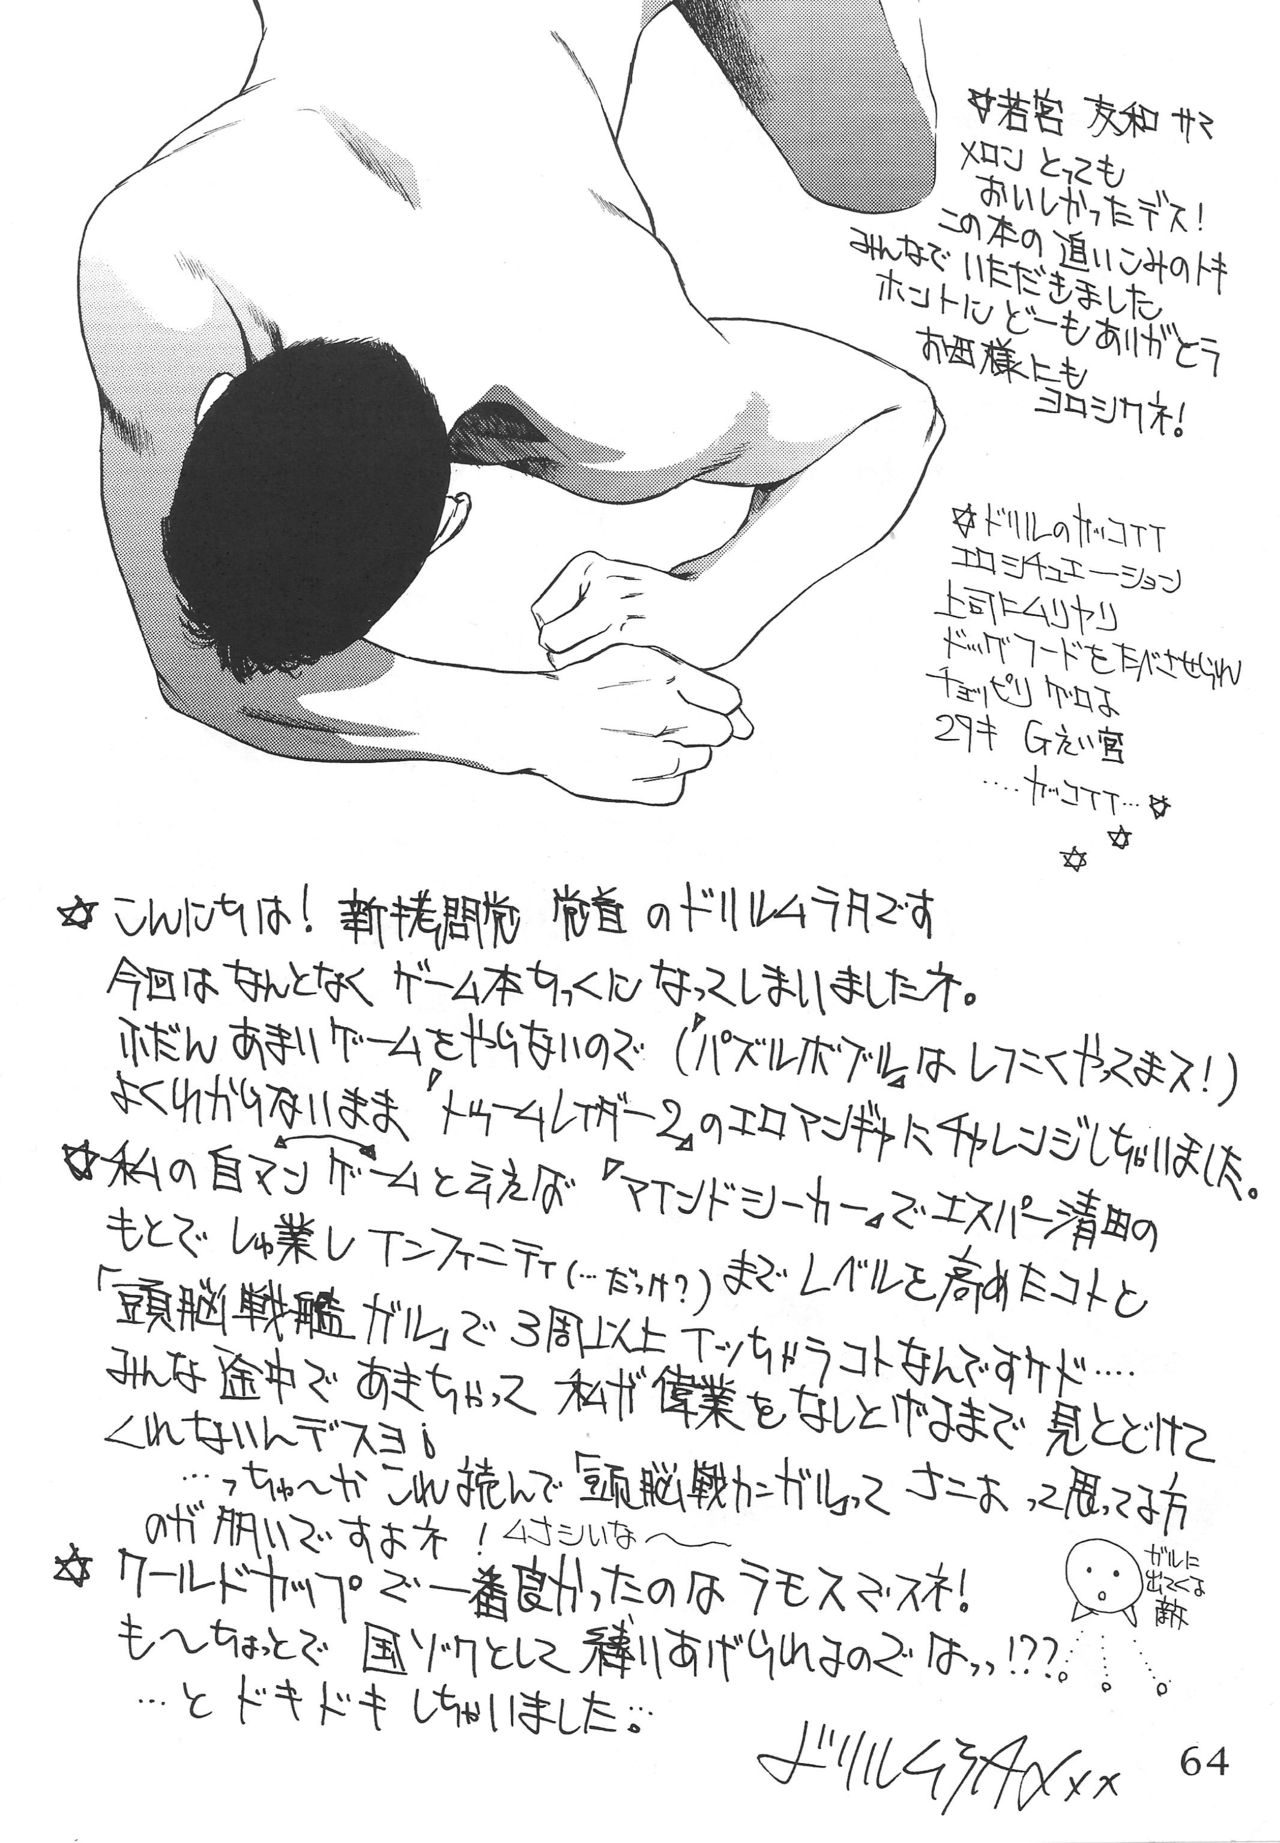 ☆若宮 友和 サマ
メロン とっても
おいしかったデス!
この本の 追いこみのトキ
みんなで いただきました
ホントに どーもありがとう
お母様にも
ヨロシクネ!
☆ドリルのカッコイイ
エロシチュエーション
上司にムリヤリ
ドッグフードをたべさせられ
チョッピリ ゲロる
29才
....カッコイイ...☆
☆
☆
☆こんにちは! 新拷問党 党首 のドリルムラタです
今回は なんとなく ゲーム本ちっくに なってしまいましたネ。
ふだん あまりゲームをやらないので (『パズルボブル』は しつこくやってまス!)
よくわからないまま 『トゥームレイダー2』のエロマンガにチャレンジしちゃいました。
☆私の自マン ゲームと言えば 『マインドシーカー』でエスパー清田の
もとで しゅ業し インフィニティ(…だっけ?)まで レベルを高めたコトと
「頭脳戦艦 ガル」で 3周以上 イッちゃうコトなんですケド....
みんな途中で あきちゃって 私が偉業をなしとげるまで 見とどけて
くれないんデスヨ!
…っちゅ〜か これ読んで「頭脳戦カンガル」って なによ って思ってる方
のが 多いですよネ! ムナシいな〜
ガルに
出てくる
敵
☆ワールドカップで 一番良かったのは ラモスでスネ!
も〜ちょっとで 国ゾクとして 棒りあげられるのでは っっ!???
…と ドキドキ しちゃいました。
ドリルムラタ xx
64